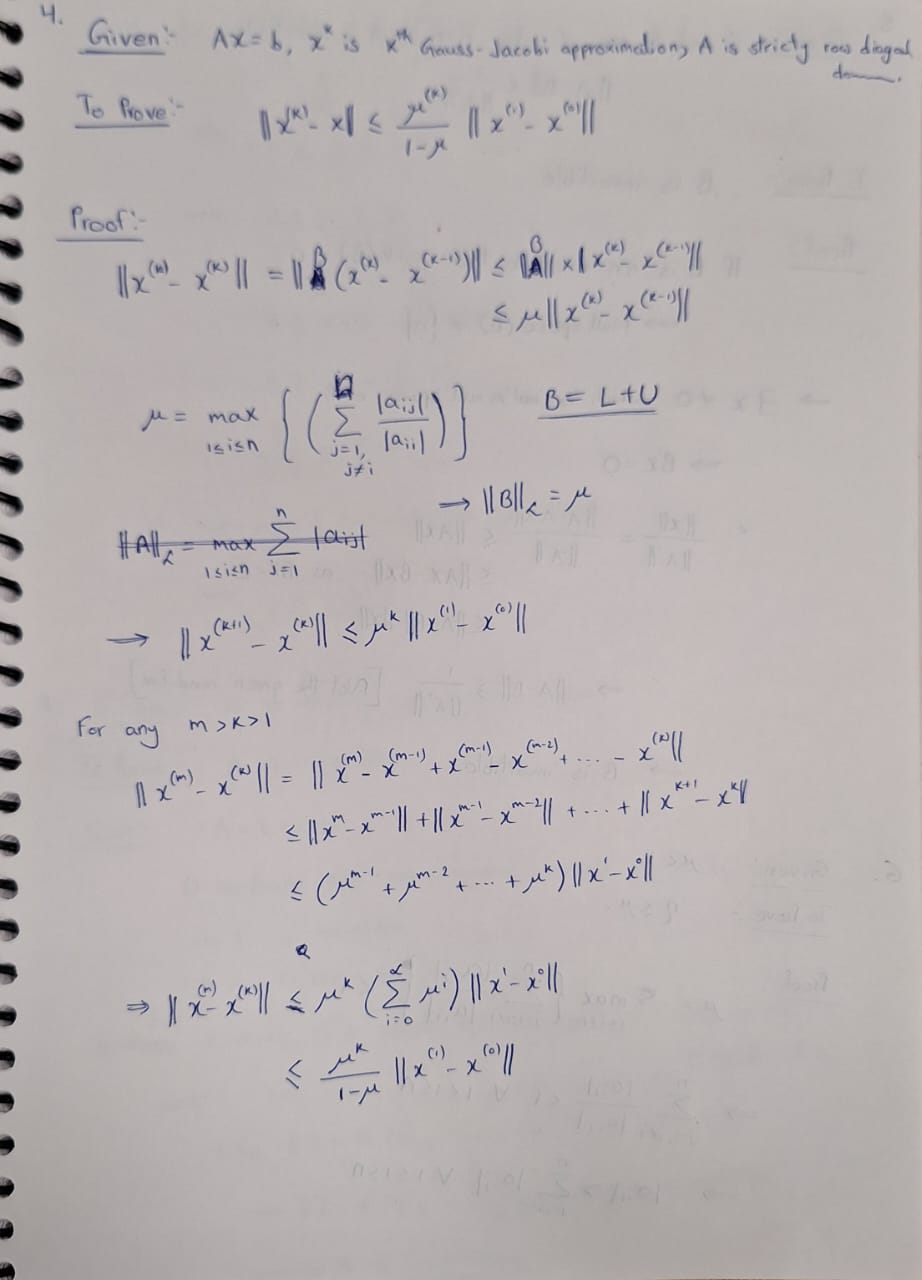 4.
Given:- Ax = b, x^k is x^th Gauss-Jacobi approximation, A is stricty row diagonal
dom.
To Prove:- ||x^(k) - x|| ≤ μ^(k)/(1-μ) ||x^(1) - x^(0)||
Proof:-
||x^(n) - x^(k)|| = ||B (x^(k) - x^(k-1))|| ≤ ||B|| × ||x^(k) - x^(k-1)||
≤ μ||x^(k) - x^(k-1)||
μ = max_{1≤i≤n} { ( Σ_{j=1, j≠i}^{n} |a_ij|/|a_ii| ) } B = L+U
→ ||B||_∞ = μ
||A||_∞ = max_{1≤i≤n} Σ_{j=1}^{n} |a_ij|
→ ||x^(k+1) - x^(k)|| ≤ μ^k ||x^(1) - x^(0)||
For any m > k > 1
||x^(m) - x^(k)|| = ||x^(m) - x^(m-1) + x^(m-1) - x^(m-2) + ... - x^(k)||
≤ ||x^m - x^m-1|| + ||x^m-1 - x^m-2|| + ... + ||x^k+1 - x^k||
≤ (μ^m-1 + μ^m-2 + ... + μ^k) ||x^1 - x^0||
⇒ ||x^(n) - x^(k)|| ≤ μ^k ( Σ_{i=0}^{∞} μ^i ) ||x^1 - x^0||
≤ μ^k/(1-μ) ||x^(1) - x^(0)||